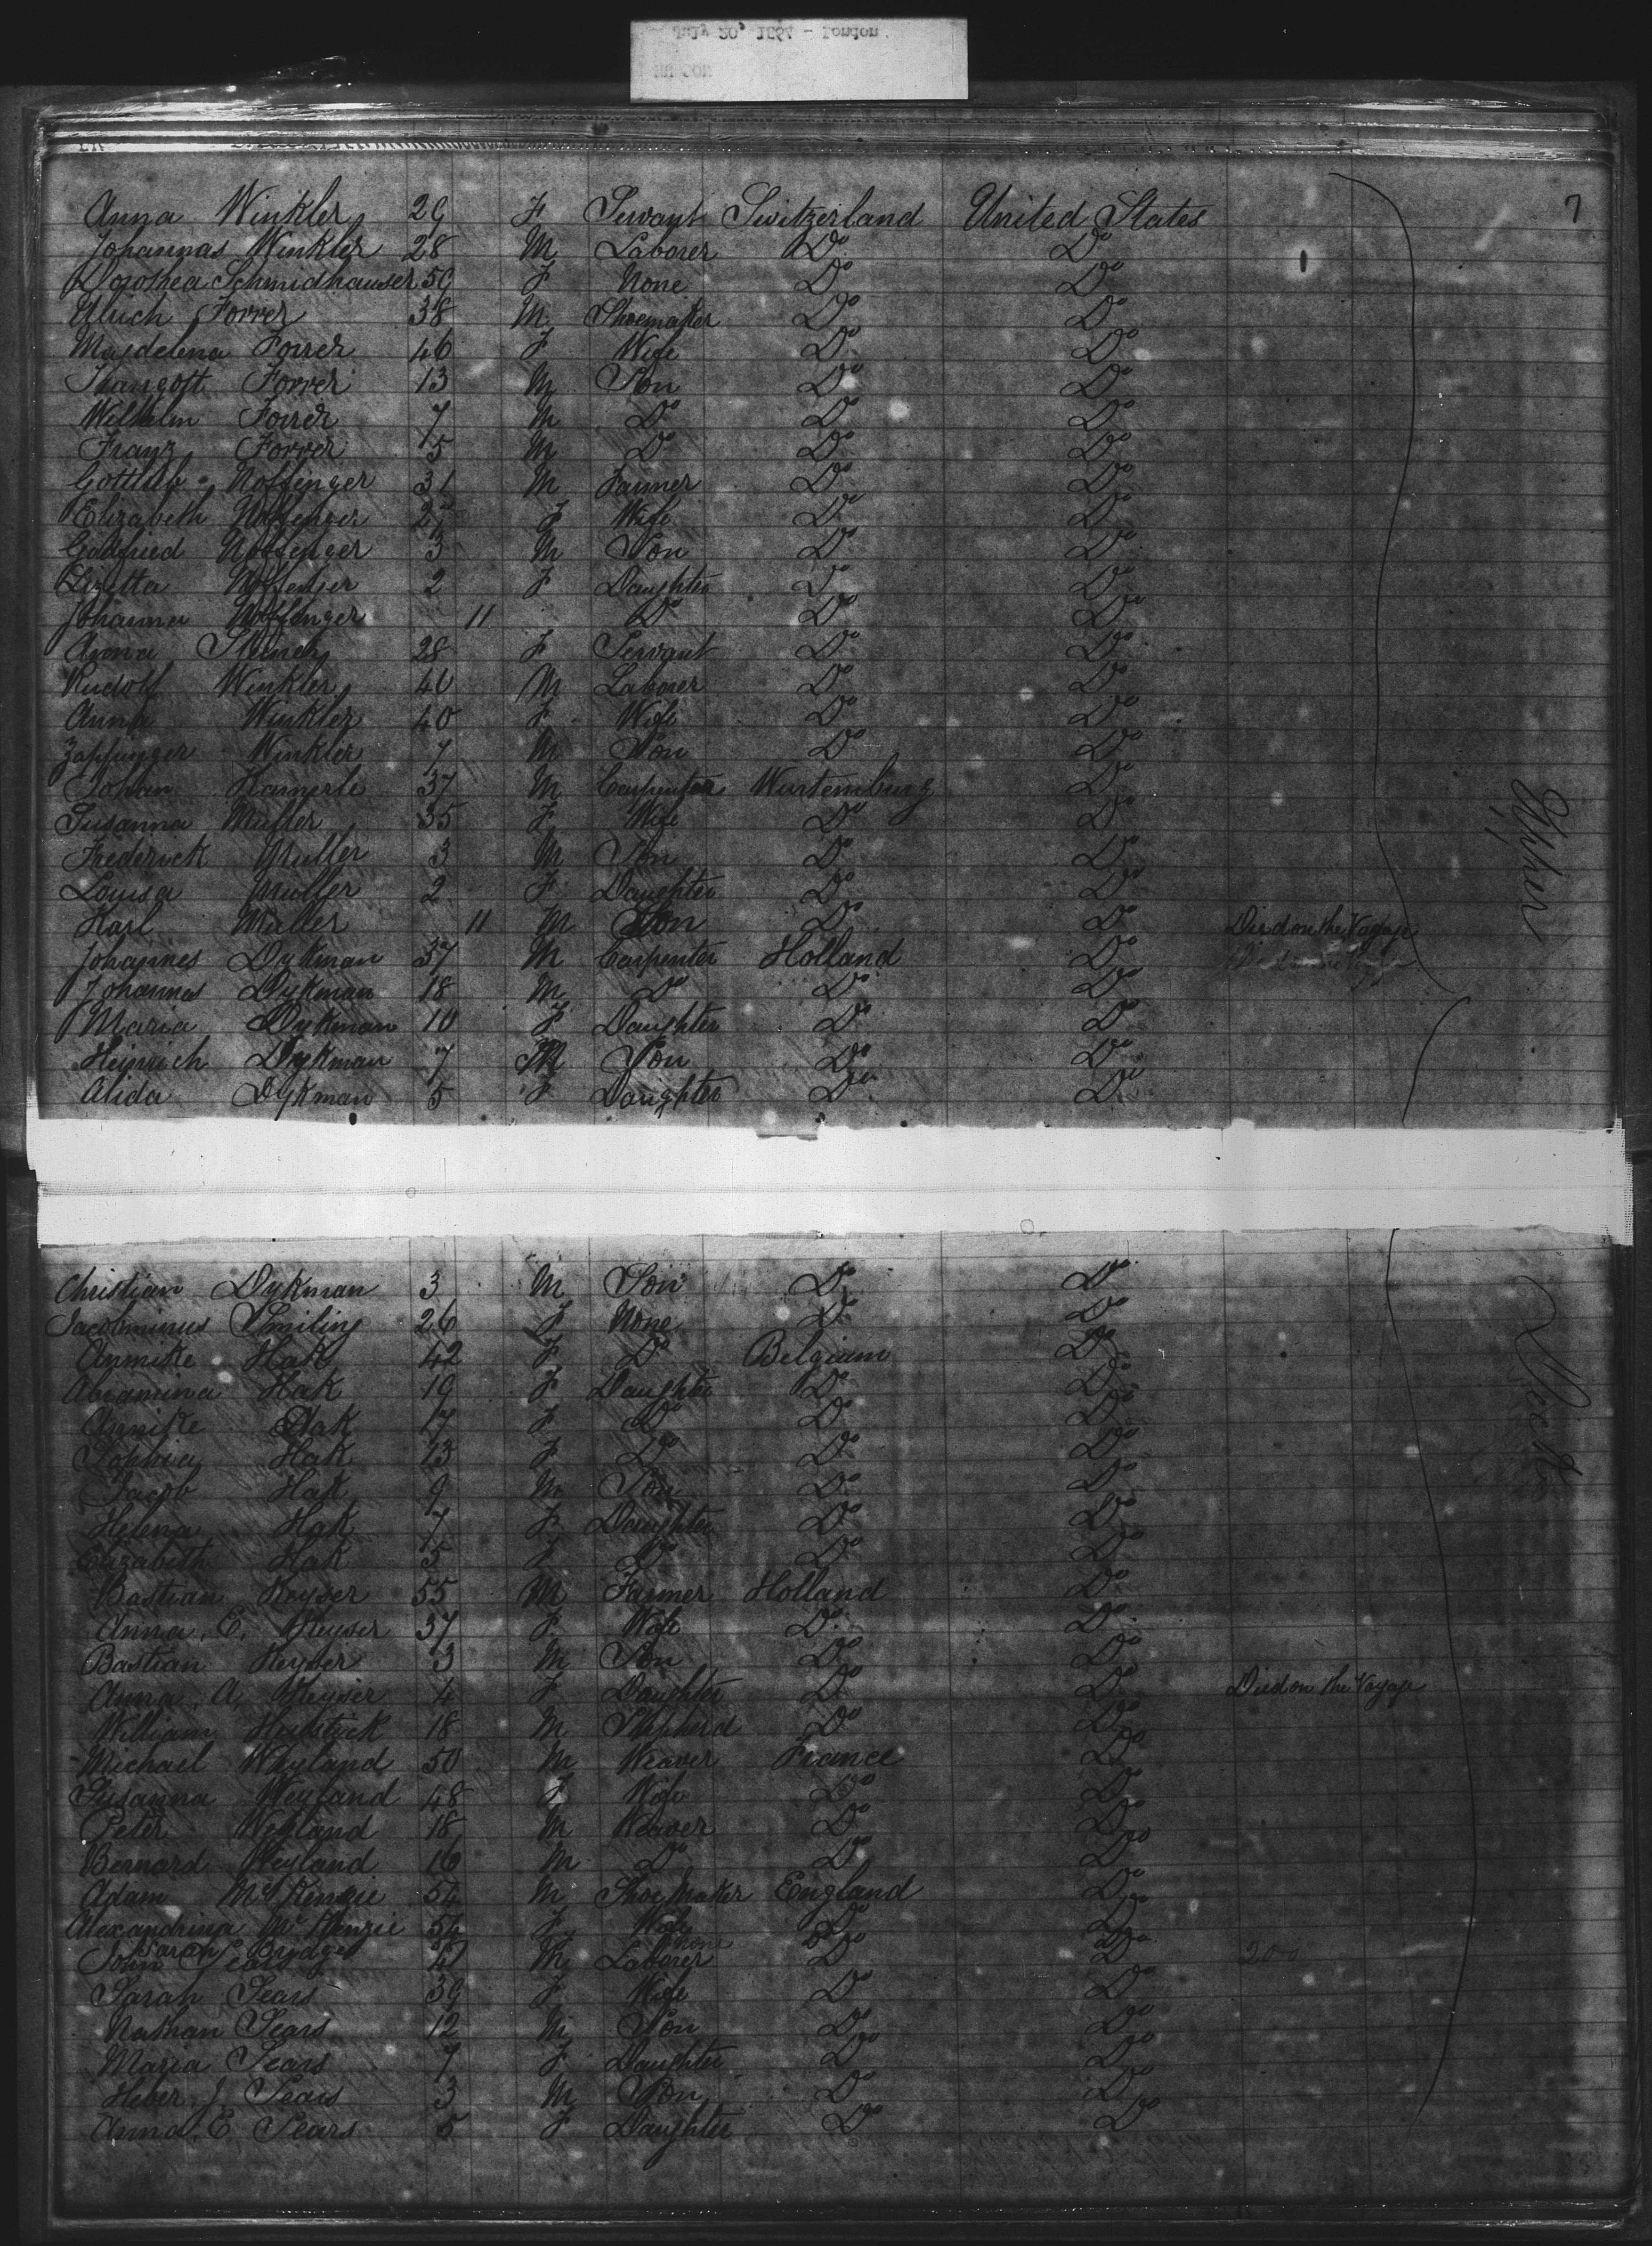 July 20, 1864 - London
7
Anna Winkler 29 F Servant Switzerland United States
Johannas Winkler 28 M Laborer Do Do
Dorothea Schmidhauser 59 F None Do Do
Ulrich Forrer 38 M Shoemaker Do Do
Magdelena Forrer 46 F Wife Do Do
Forrer 13 M Son Do Do
Wilhelm Forrer 7 M Do Do Do
Franz Forrer 5 M Do Do Do
Gottlieb 31 M Farmer Do Do
Elizabeth F Wife Do Do
Godfried 3 M Son Do Do
Lizetta 2 F Daughter Do Do
Johanna 11 Do Do Do
Anna 28 F Servant Do Do
Rudolf Winkler 40 M Laborer Do Do
Anna Winkler 40 F Wife Do Do
Winkler 7 M Son Do Do
Johan Hamerle 37 M Carpenter Wurtemburg Do
Susanna Muller 35 F Wife Do Do
Frederick Muller 3 M Son Do Do
Louisa Muller 2 F Daughter Do Do
Karl Muller 11 M Son Do Do Died on the Voyage
Johannes Dykman 37 M Carpenter Holland Do
Johannas Dykman 18 M Do Do Do
Maria Dykman 10 F Daughter Do Do
Heinrich Dykman 7 M Son Do Do
Alida Dykman 5 F Daughter Do Do
Christian Dykman 3 M Son Do Do
Smiling 26 F None Do Do
Annike Hak 42 F Do Belgium Do
Abramina Hak 19 F Daughter Do Do
Annike Hak 17 F Do Do Do
Sophia Hak 13 F Do Do Do
Jacob Hak 9 M Son Do Do
Helena Hak 7 F Daughter Do Do
Elizabeth Hak 5 F Do Do Do
Bastian Keyser 55 M Farmer Holland Do
Anna. E. Keyser 37 F Wife Do Do
Bastian Keyser 3 M Son Do Do
Anna. A. Keyser 4 F Daughter Do Do Died on the Voyage
William 18 M Shepherd Do Do
Michael Weyland 50 M Weaver France Do
Susanna Weyland 48 F Wife Do Do
Peter Weyland 18 M Weaver Do Do
Bernard Weyland 16 M Do Do Do
Adam McKenzie 54 M Shoe Maker England Do
Alexandrina McKenzie 54 F Wife Do Do
Sarah Bridges none Do Do
John Sears 47 M Laborer Do Do 200
Sarah Sears 39 F Wife Do Do
Nathan Sears 12 M Son Do Do
Maria Sears 7 F Daughter Do Do
Heber J. Sears 3 M Son Do Do
Anna. E. Sears 5 F Daughter Do Do